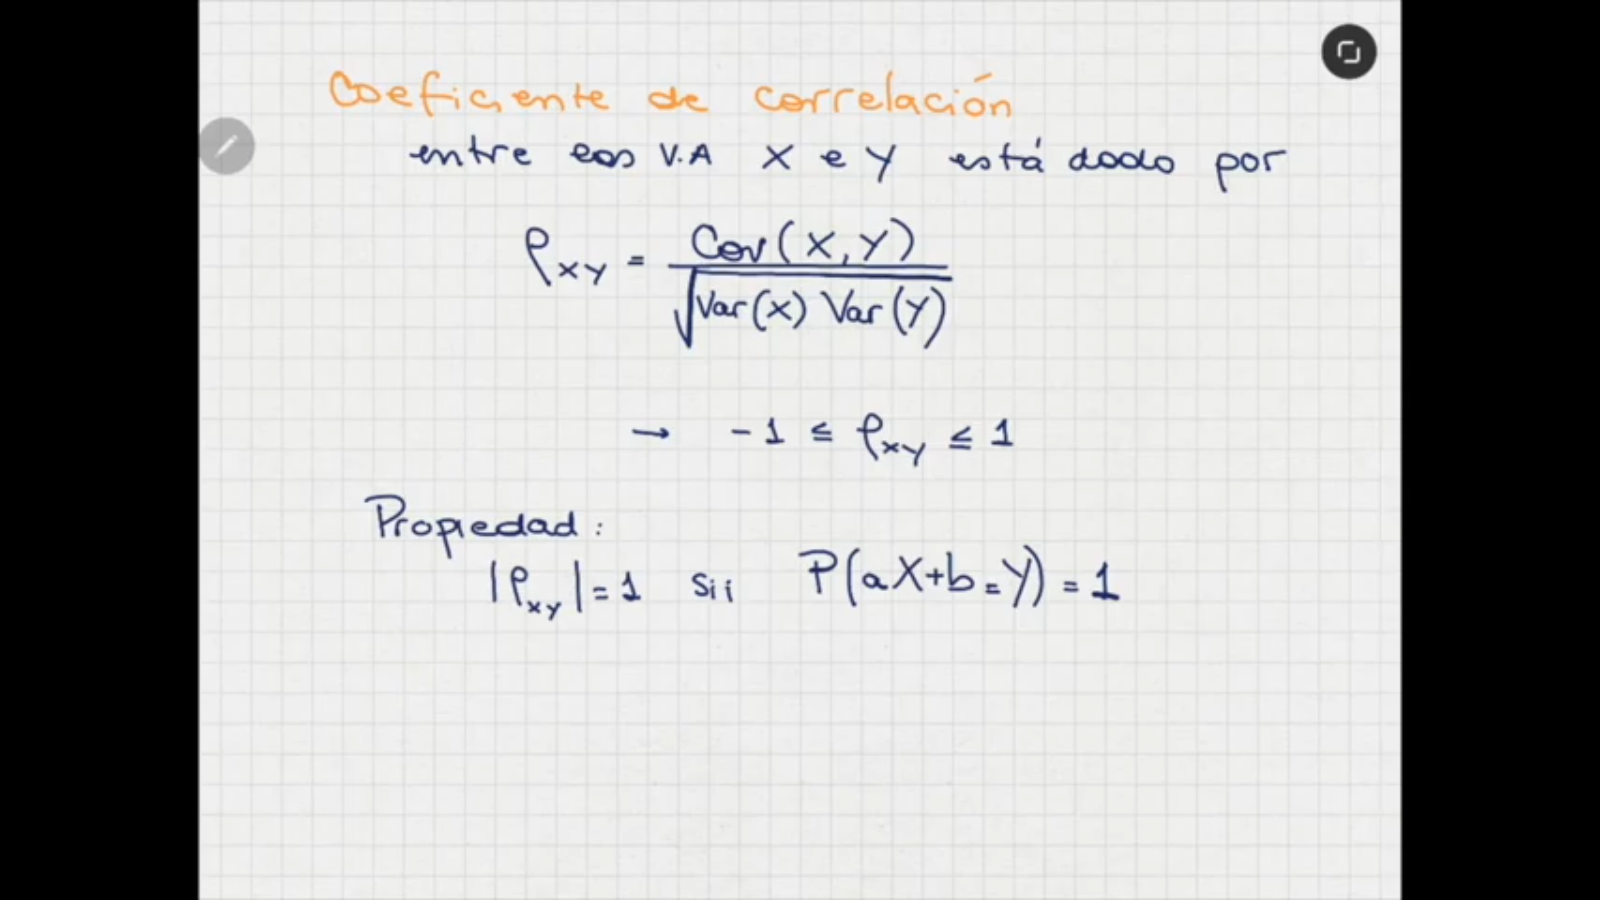 Coeficiente de correlación
entre las V.A X e Y está dado por
ρ_XY = Cov(X,Y) / √(Var(X) Var(Y))
→ -1 ≤ ρ_XY ≤ 1
Propiedad:
|ρ_XY| = 1 sii P(aX+b=Y) = 1